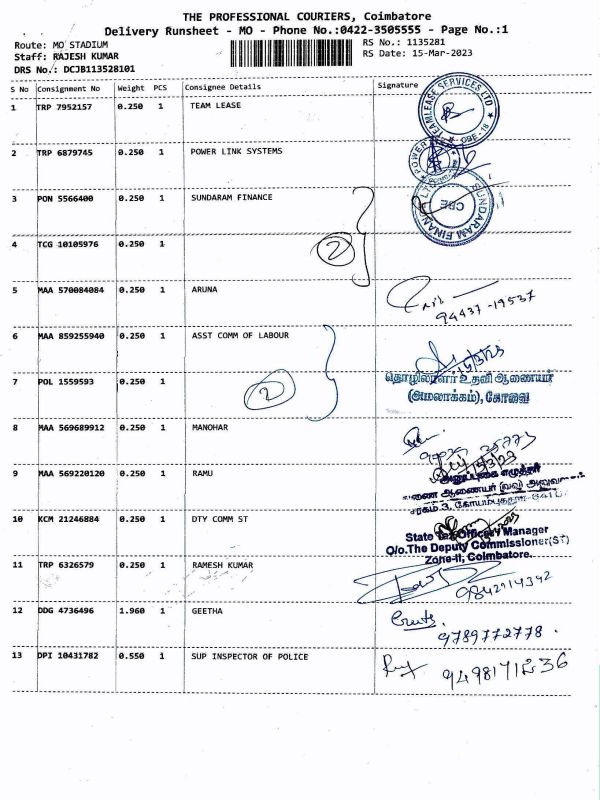 THE PROFESSIONAL COURIERS, Coimbatore
Delivery Runsheet - MO - Phone No.:0422-3505555 - Page No.:1
Route: MO STADIUM
RS No.: 1135281
Staff: RAJESH KUMAR
RS Date: 15-Mar-2023
DRS No.: DCJB113528101
S No Consignment No Weight PCS Consignee Details Signature
1 TRP 7952157 0.250 1 TEAM LEASE
TEAMLEASE SERVICES LTD
CBE - 18
2 TRP 6879745 0.250 1 POWER LINK SYSTEMS
POWER
3 PON 5566400 0.250 1 SUNDARAM FINANCE
SUNDARAM FINANCE LTD
CBE
4 TCG 10105976 0.250 1
2
5 MAA 570084084 0.250 1 ARUNA
94437-19537
6 MAA 859255940 0.250 1 ASST COMM OF LABOUR
15/3/23
தொழிலாளர் உதவி ஆணையர்
(அமலாக்கம்), கோவை
7 POL 1559593 0.250 1
2
8 MAA 569689912 0.250 1 MANOHAR
9 MAA 569220120 0.250 1 RAMU
15/3/23
10 KCM 21246884 0.250 1 DTY COMM ST
State Tax Officer / Manager
O/o.The Deputy Commissioner(ST)
Zone-II, Coimbatore.
11 TRP 6326579 0.250 1 RAMESH KUMAR
9842914342
12 DDG 4736496 1.960 1 GEETHA
9789772778.
13 DPI 10431782 0.550 1 SUP INSPECTOR OF POLICE